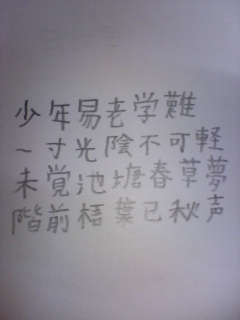 少年易老学難
一寸光陰不可軽
未覚池塘春草夢
階前梧葉已秋声